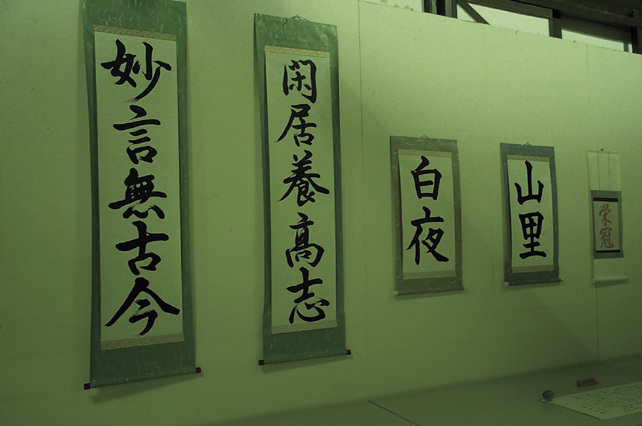 妙言無古今
閑居養高志
白夜
山里
栄冠